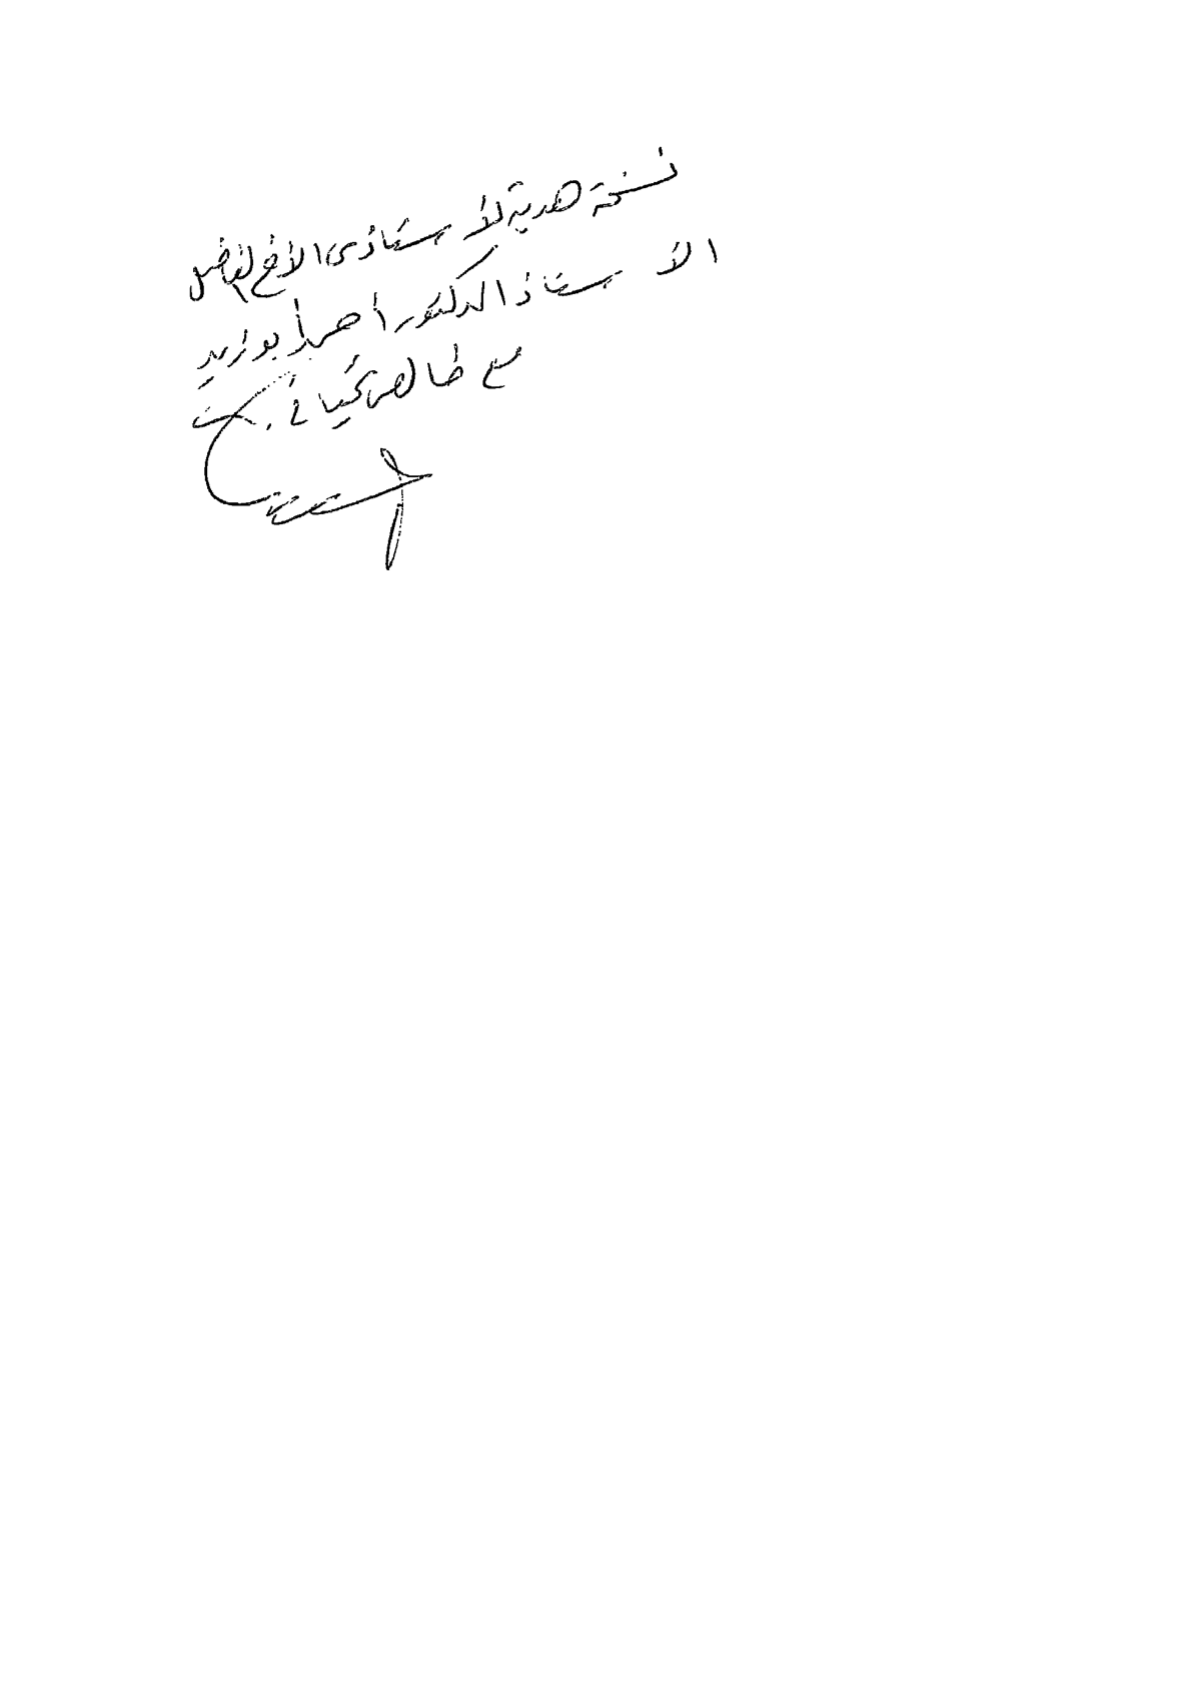 نسخة هدية لأستاذى الأخ الفاضل
الأستاذ الدكتور أحمد أبو زيد
مع خالص تحياتى